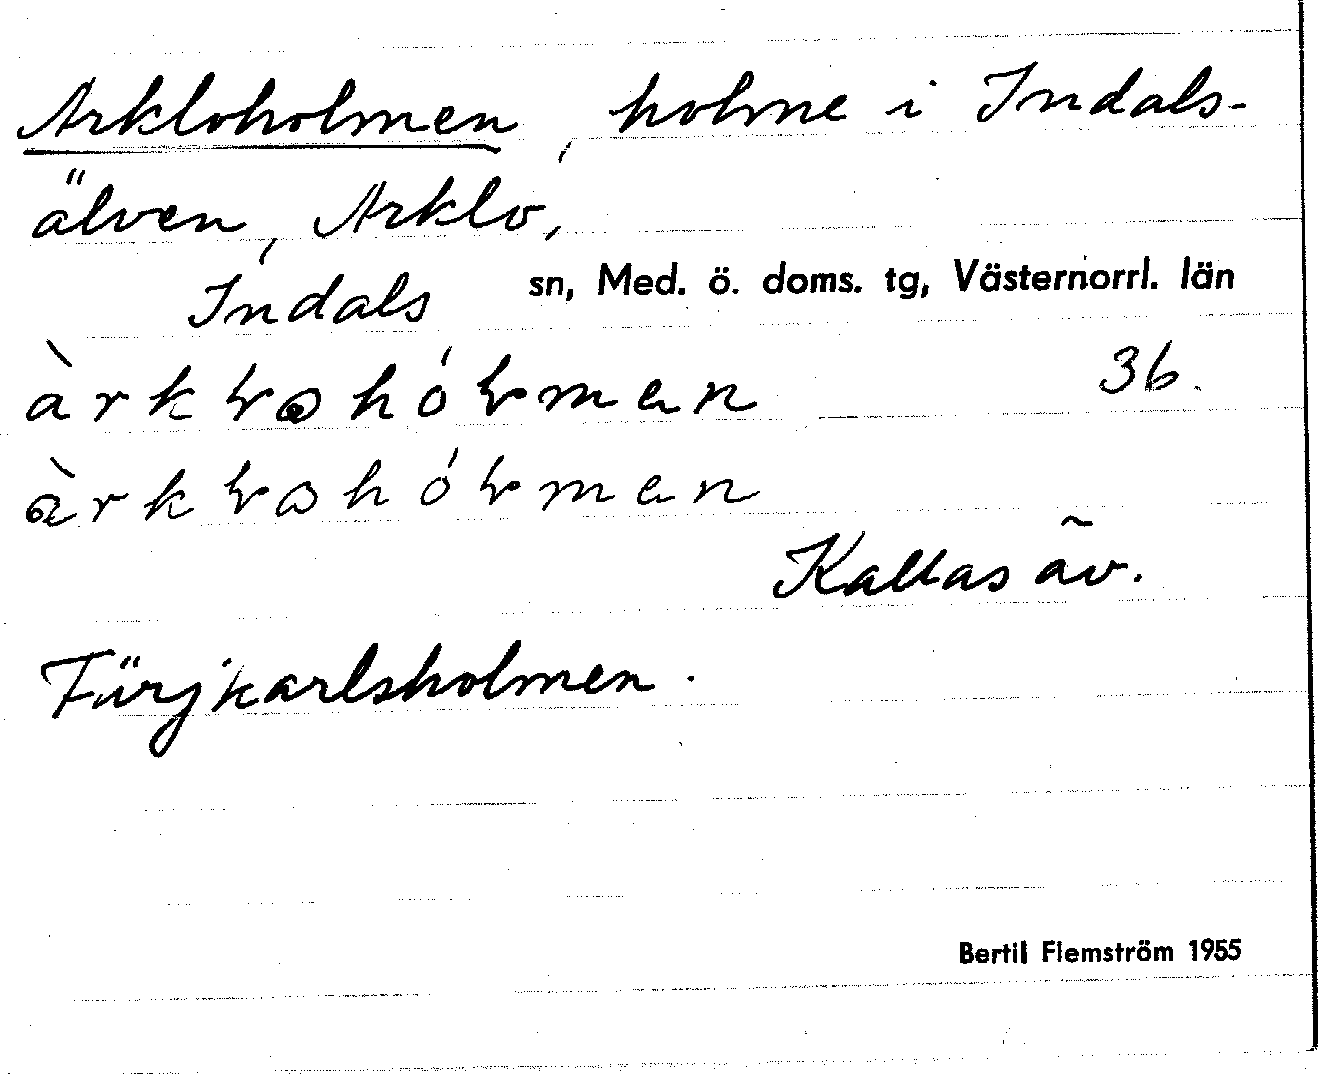 Arkloholmen, holme i Indals-
älven, Arklo,
Indals sn, Med. ö. doms. tg, Västernorrl. län
àrkɫohóɫmen 36.
àrkɫohóɫmen
Kallas äv.
Färjkarlsholmen.
Bertil Flemström 1955